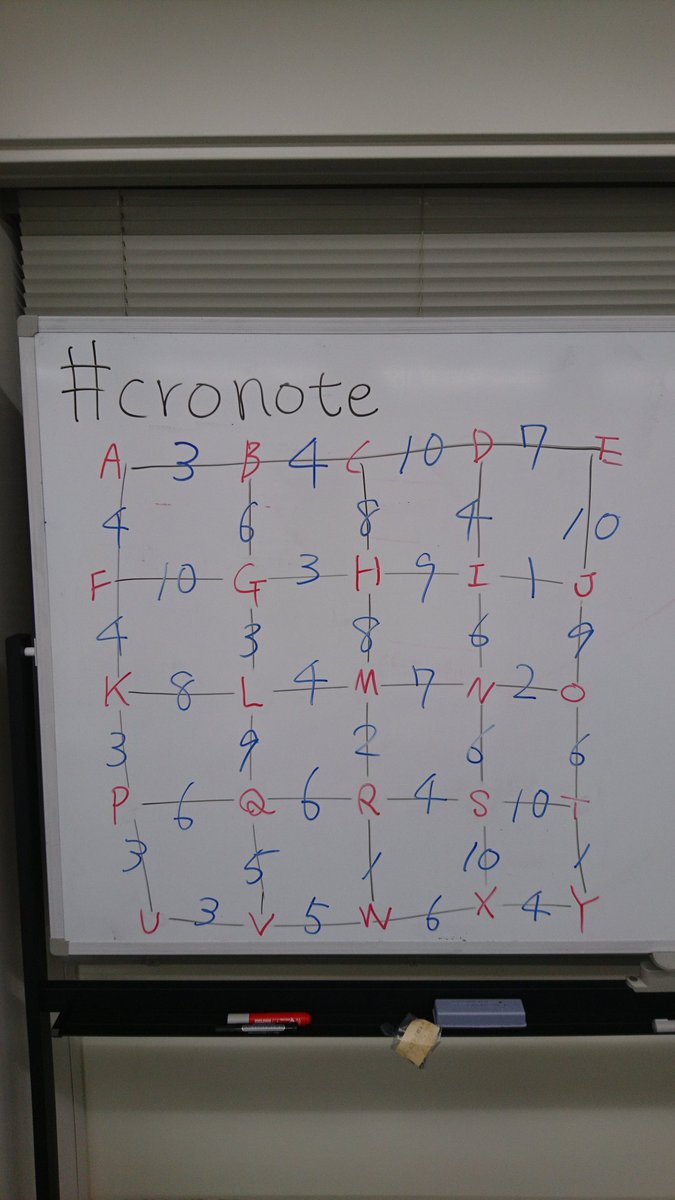 #cronote
A 3 B 4 C 10 D 7 E
4 6 8 4 10
F 10 G 3 H 9 I 1 J
4 3 8 6 9
K 8 L 4 M 7 N 2 O
3 9 2 6 6
P 6 Q 6 R 4 S 10 T
3 5 1 10 1
U 3 V 5 W 6 X 4 Y